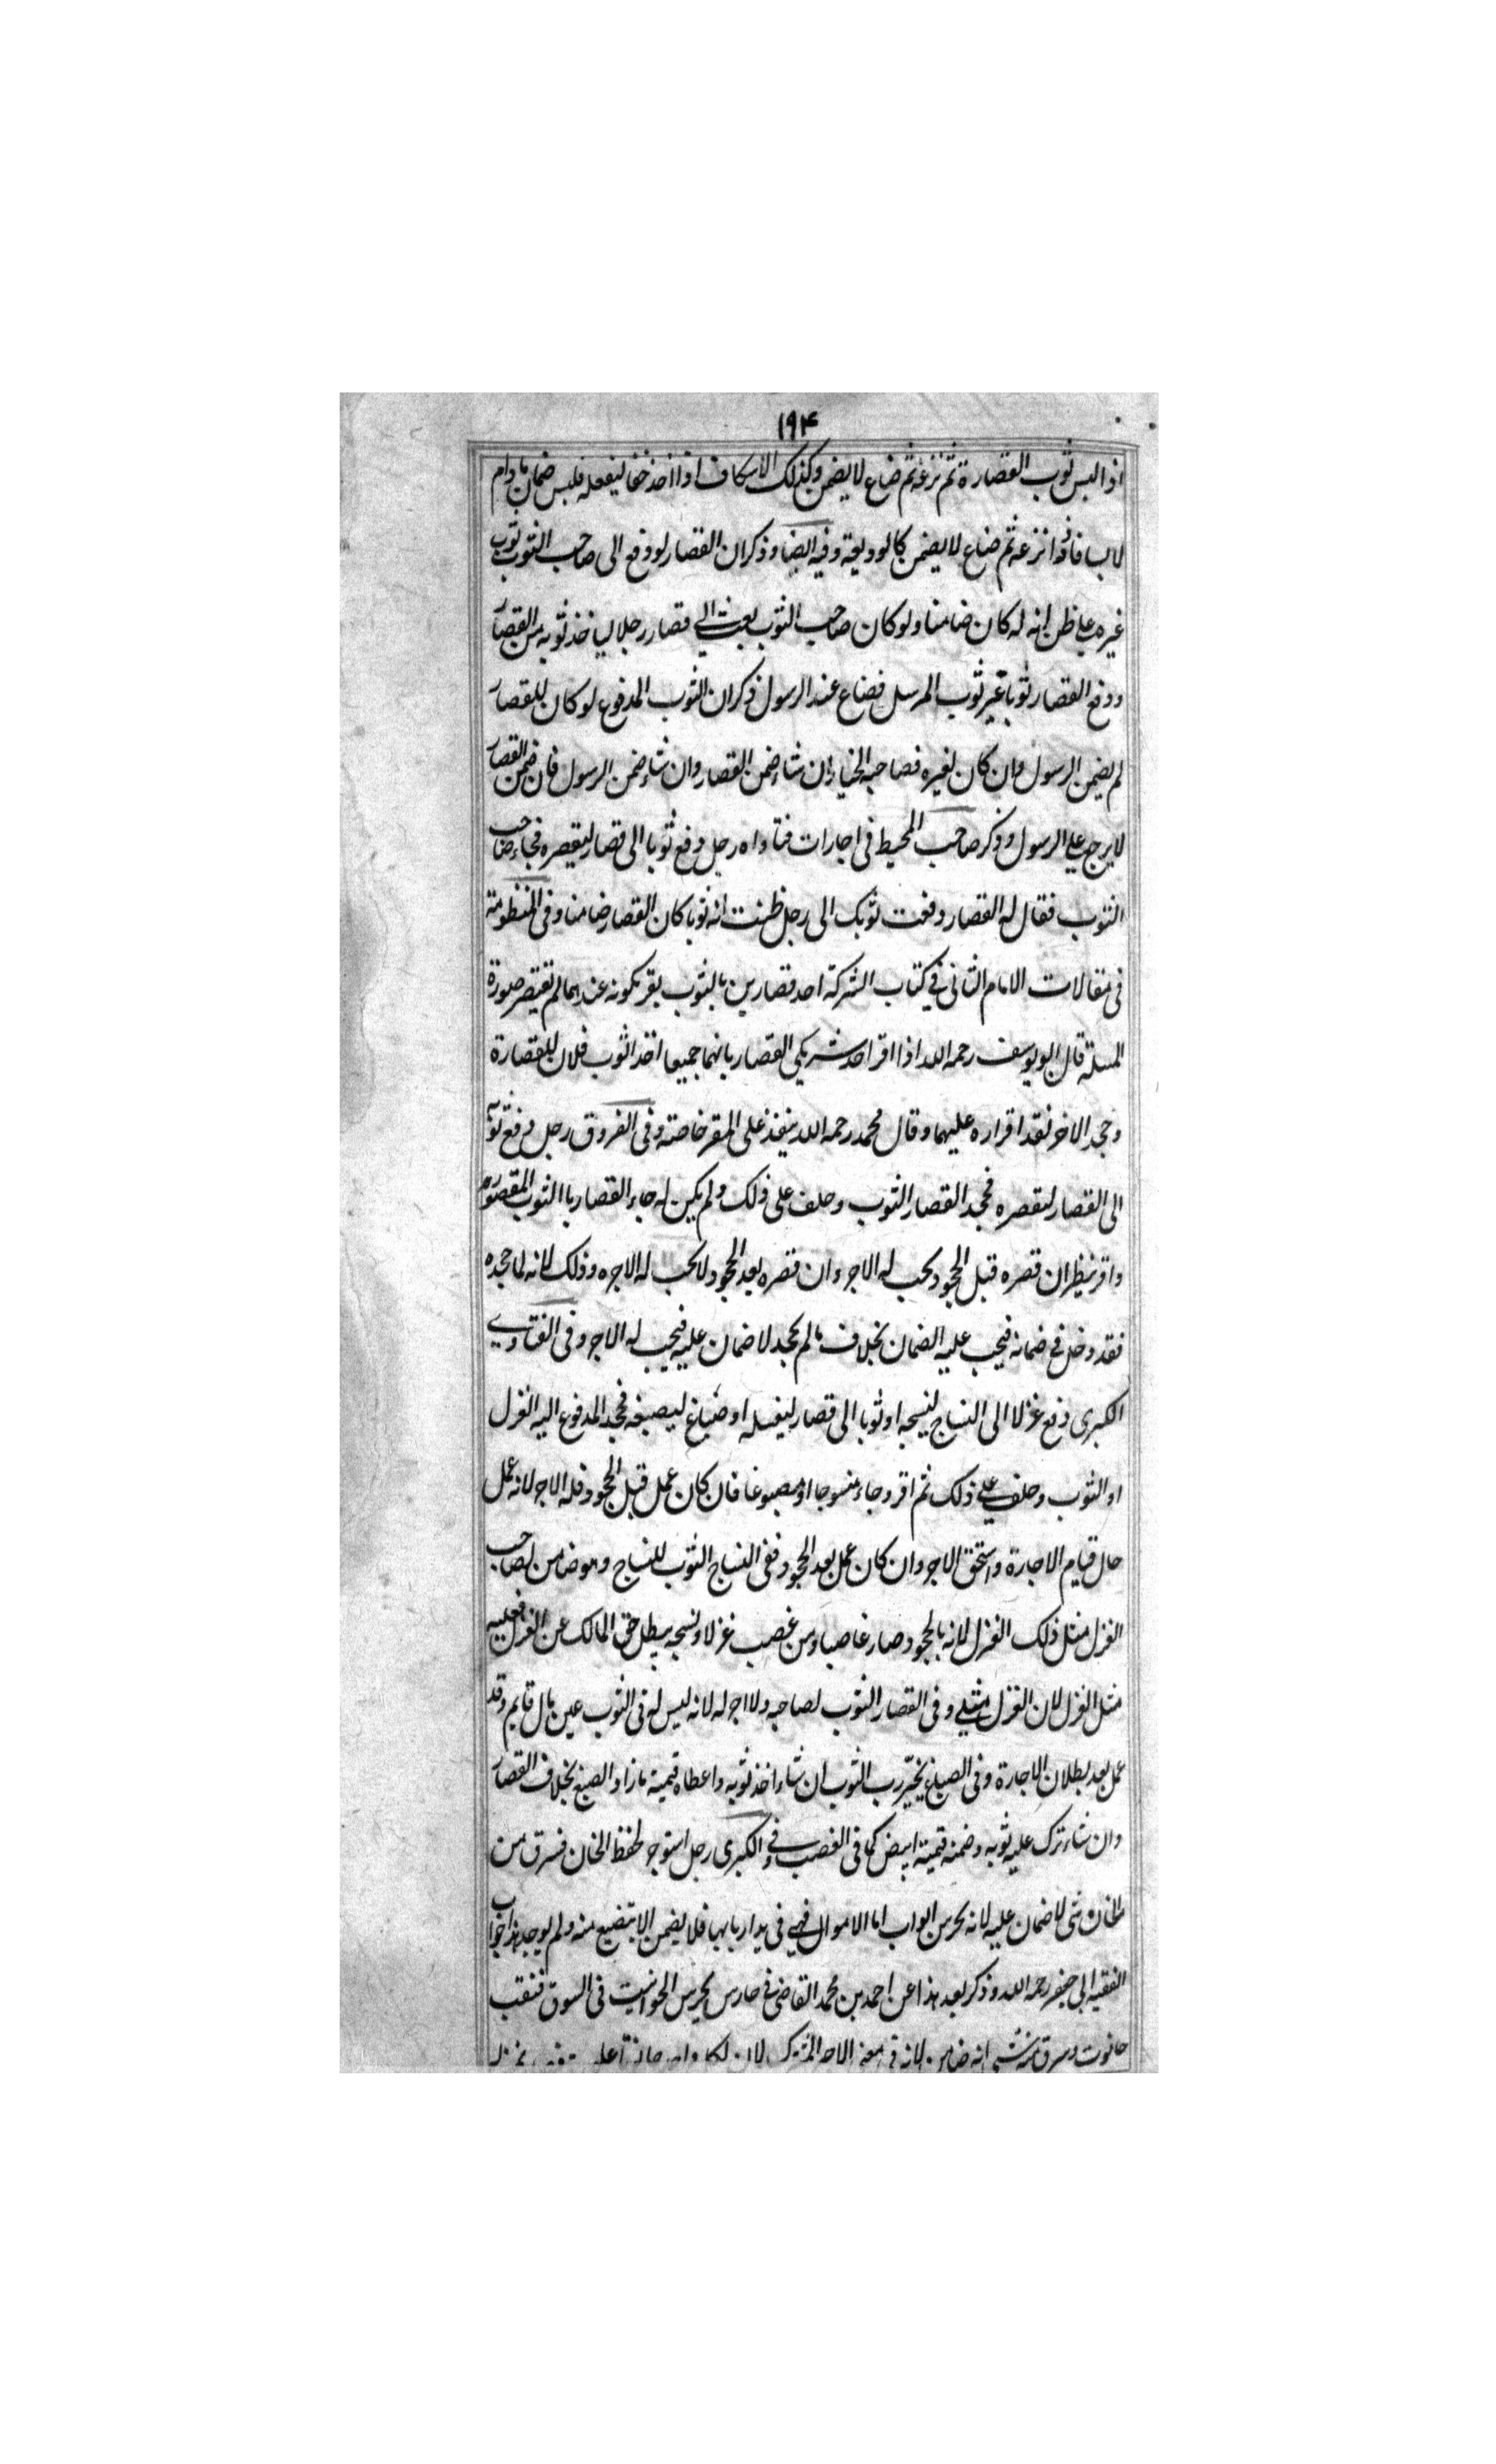 ١٩٤
اذا لبس ثوب القصارة ثم نزعه ثم ضاع لا يضمن وكذلك الاسكاف اذا اخذ خفا لينعله فلبس ضمان مادام
لابسا فاذا نزعه ثم ضاع لا يضمن كالوديعة وفيه ايضا وذكر ان القصار لو دفع الى صاحب الثوب ثوب
غيره على ظن انه له كان ضامنا ولو كان صاحب الثوب بعث الى قصار رجلا لياخذ ثوبه من القصار
ودفع القصار ثوبا غير ثوب المرسل فضاع عند الرسول ذكر ان الثوب المدفوع لو كان للقصار
لم يضمن الرسول وان كان لغيره فصاحبه الخيار ان شاء ضمن القصار وان شاء ضمن الرسول فان ضمن القصار
لا يرجع على الرسول وذكر صاحب المحيط فى اجارات فتاواه رجل دفع ثوبا الى قصار ليقصره فجاء صاحب
الثوب فقال له القصار دفعت ثوبك الى رجل ظننت انه ثوبا كان القصار ضامنا وفى المنظومة
فى مقالات الامام الثانى فى كتاب الشركة احد قصارين بالثوب يقر بكونه عندهما لم تقتصر صورة
المسئلة قال ابو يوسف رحمه الله اذا اقر احد شريكى القصار بانهما جميعا اخذ الثوب فلان للقصارة
وجحد الاخر نفذ اقراره عليهما وقال محمد رحمه الله ينفذ على المقر خاصة وفى الفروق رجل دفع ثوبه
الى القصار ليقصره فجحد القصار الثوب وحلف على ذلك ولم يكن له جاء القصار باالثوب المقصور
واقر ينظر ان قصره قبل الجحود يجب له الاجر وان قصره بعد الجحود لا يجب له الاجره وذلك لانه لما جحده
فقد دخل فى ضمانه فيجب عليه الضمان بخلاف مالم يجحد لا ضمان عليه فيجب له الاجر وفى الفتاوى
الكبرى دفع غزلا الى النساج لينسجه او ثوبا الى قصار ليغسله او صباغ ليصبغه فجحد المدفوع اليه الغزل
او الثوب وحلف على ذلك ثم اقر وجاء منسوجا او مصبوغا فان كان عمل قبل الجحود فله الاجر لانه عمل
حال قيام الاجارة واستحق الاجر وان كان عمل بعد الجحود ففى النساج الثوب للنساج وهو ضامن لصاحب
الغزل مثل ذلك الغزل لانه بالجحود صار غاصبا ومن غصب غزلا ونسجه يبطل حق المالك عن الغزل فعليه
مثل الغزل لان الغزل مثلى وفى القصار الثوب لصاحبه ولا اجر له لانه ليس له فى الثوب عين مال قايم وقد
عمل بعد بطلان الاجارة وفى الصباغ يخيّر رب الثوب ان شاء اخذ ثوبه واعطاه قيمة مازاد الصبغ بخلاف القصار
وان شاء ترك عليه ثوبه وضمنه قيمة ابيض كما فى الغصب وفى الكبرى رجل استوجر لحفظ الخان فسرق من
الخان شى لا ضمان عليه لانه يحرس ابواب اما الاموال فهى فى يد اربابها فلا يضمن الا بتضيع منه ولم يوجد هذا جواب
الفقيه ابى جعفر رحمه الله وذكر بعد هذا عن احمد بن محمد القاضى فى حارس يحرس الحوانيت فى السوق فنقب
حانوت وسرق منه شى انه ضامن لانه فى معنى الاجير المشترك لان لكل واحد حانوتا على